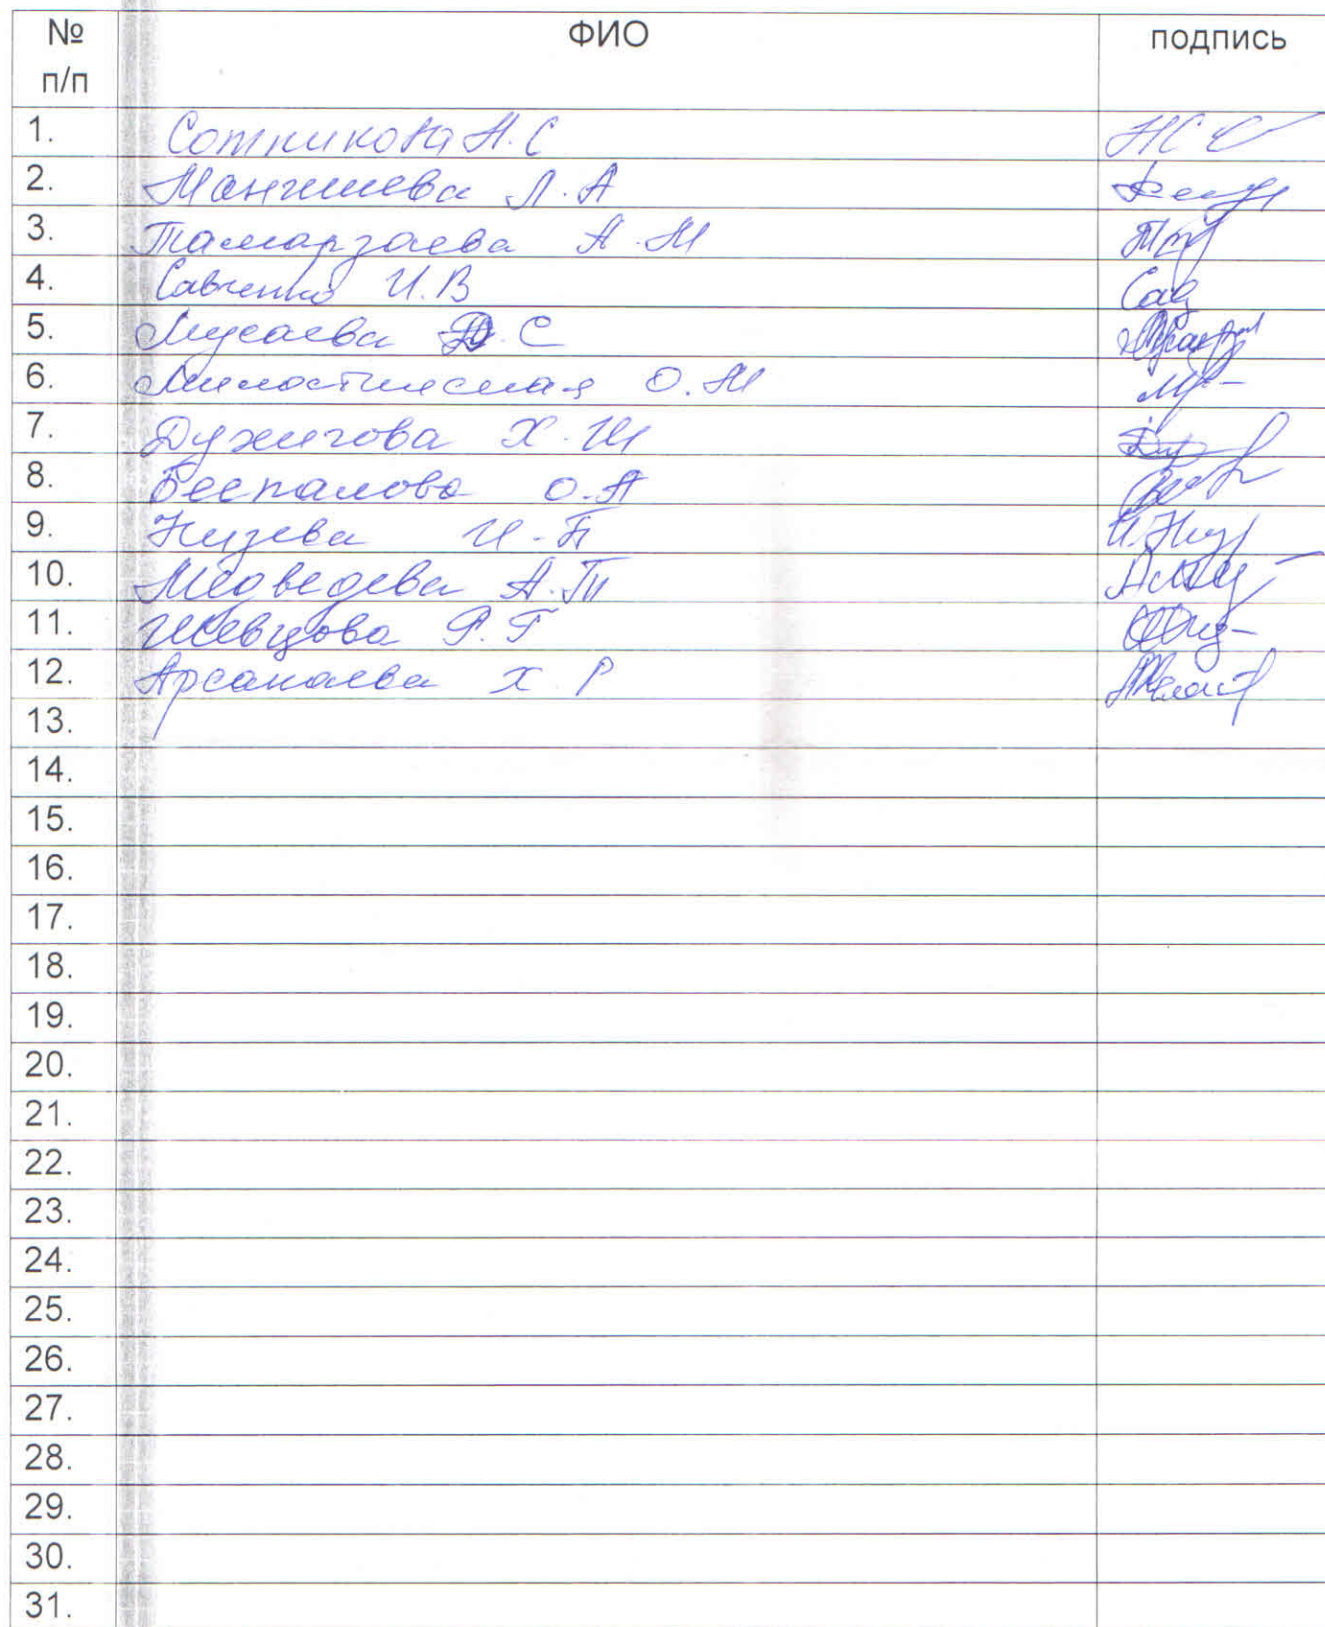 № п/п ФИО подпись
1. Сотникова Н.С
2. Л.А
3. Тамарзаева А.М
4. Савченко И.В
5. Мусаева Д.С
6. О.М
7. Дужигова Х.Ш
8. Беспалова О.А
9. Низева И.П
10. Медведева А.П
11. Шевцова Р.Г
12. Арсанаева Х Р
13.
14.
15.
16.
17.
18.
19.
20.
21.
22.
23.
24.
25.
26.
27.
28.
29.
30.
31.